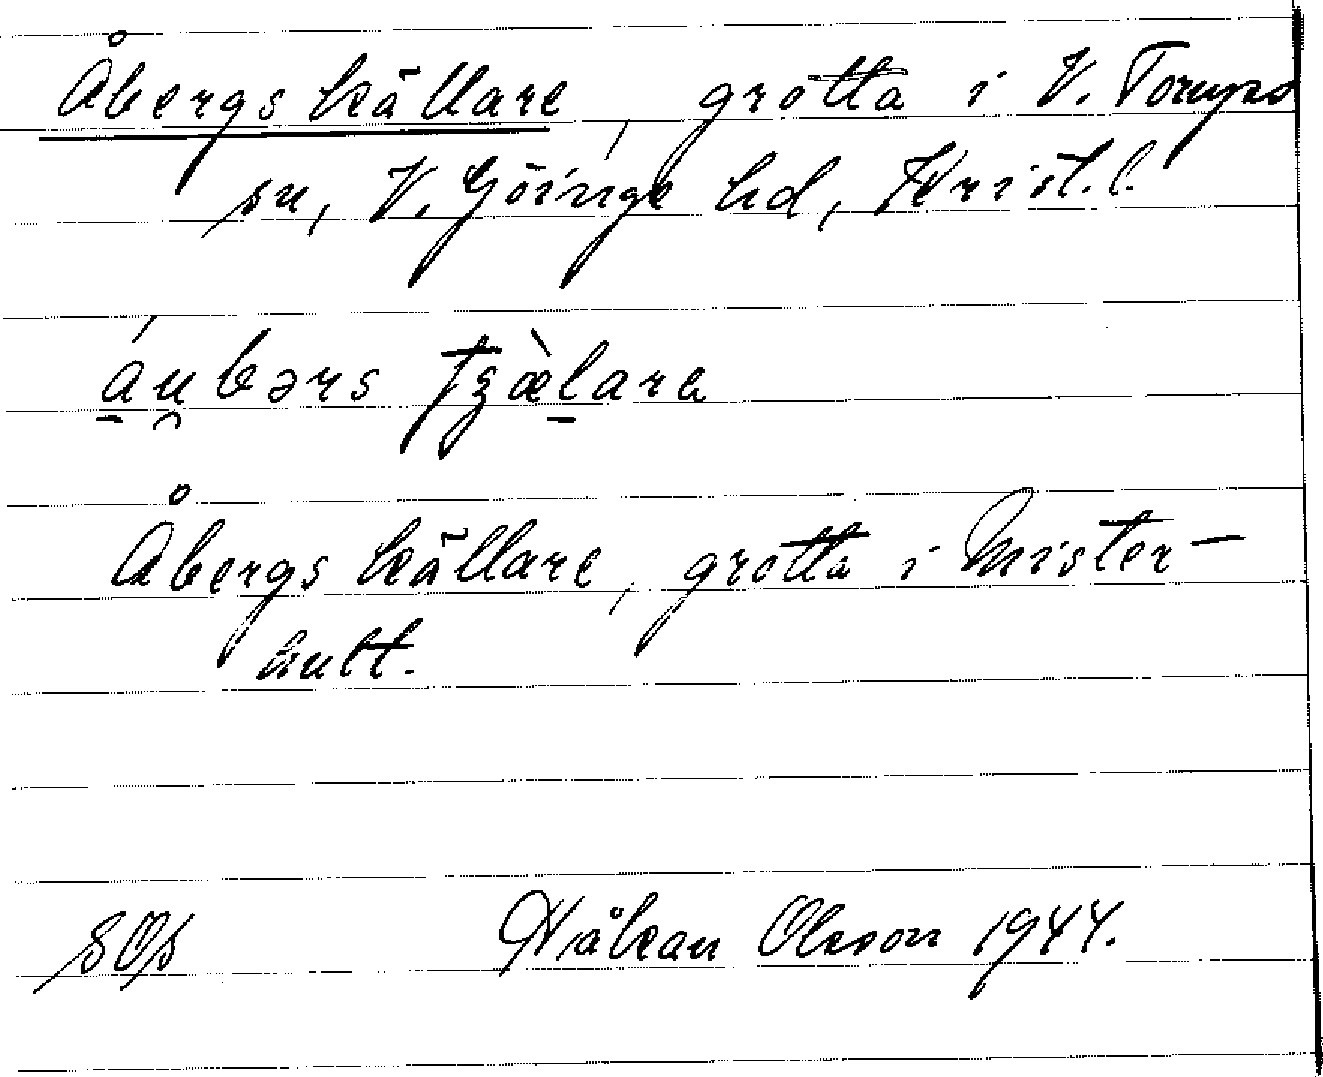 Åbergs källare, grotta i V. Torups
sn, V. Göinge hd, Krist. l.
áu̯bərs tʒæ̀lara
Åbergs källare, grotta i Mister-
hult.
SOs Håkan Olsson 1944.